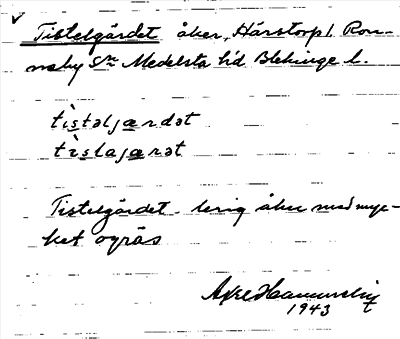 Tistelgärdet åker, Hårstorp 1. Ron-
neby Sn Medelsta hd Blekinge l.
tìstəljardət
tìslajarət
Tistelgärdet - lerig åker med myc-
ket ogräs
Axel
1943